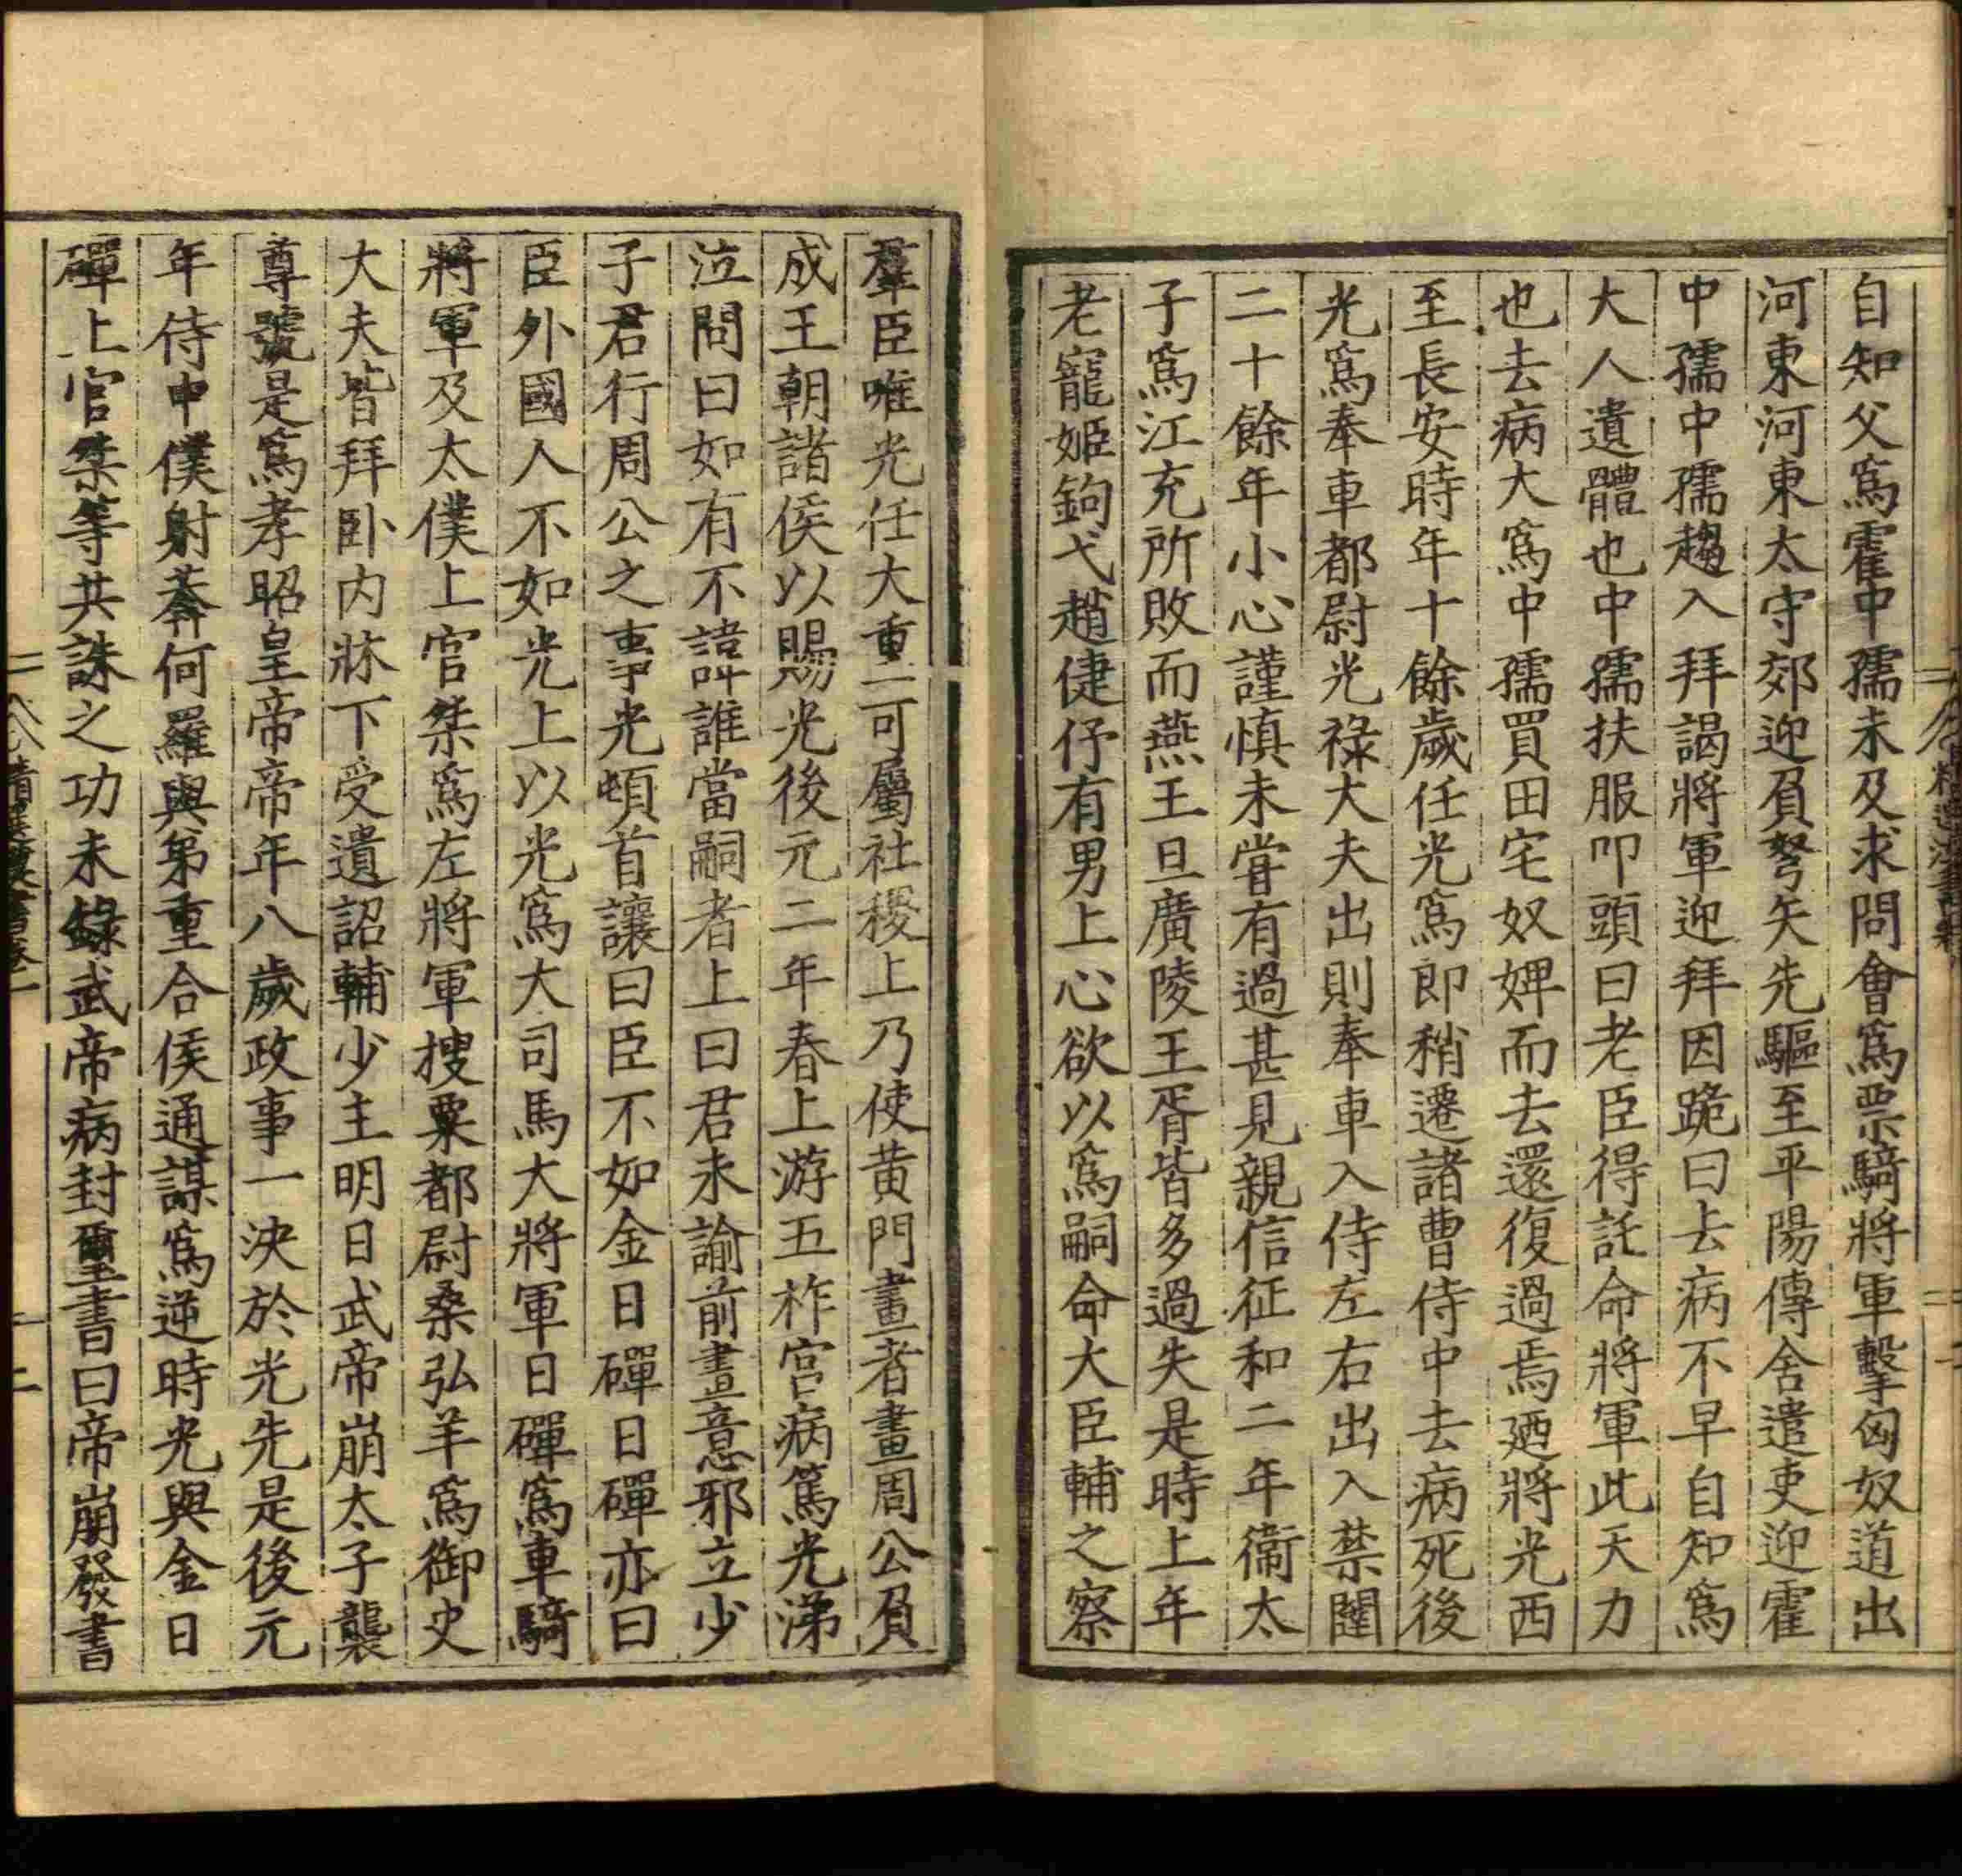 自知父爲霍中孺未及求問會爲票騎將軍擊匈奴道出
河東河東太守郊迎負弩矢先驅至平陽傳舍遣吏迎霍
中孺中孺趨入拜謁將軍迎拜因跪曰去病不早自知爲
大人遺體也中孺扶服叩頭曰老臣得託命將軍此天力
也去病大爲中孺買田宅奴婢而去還復過焉廼將光西
至長安時年十餘歲任光爲郎稍遷諸曹侍中去病死後
光爲奉車都尉光祿大夫出則奉車入侍左右出入禁闥
二十餘年小心謹慎未甞有過甚見親信征和二年衞太
子爲江充所敗而燕王旦廣陵王胥皆多過失是時上年
老寵姬鉤弋趙倢伃有男上心欲以爲嗣命大臣輔之察
羣臣唯光任大重可屬社稷上乃使黄門畫者畫周公負
成王朝諸侯以賜光後元二年春上游五柞宮病篤光涕
泣問曰如有不諱誰當嗣者上曰君未諭前畫意邪立少
子君行周公之事光頓首讓曰臣不如金日磾日磾亦曰
臣外國人不如光上以光爲大司馬大將軍日磾爲車騎
將軍及太僕上官桀爲左將軍搜粟都尉桑弘羊爲御史
大夫皆拜卧内牀下受遺詔輔少主明日武帝崩太子襲
尊號是爲孝昭皇帝帝年八歲政事一決於光先是後元
年侍中僕射莽何羅與弟重合侯通謀爲逆時光與金日
磾上官桀等共誅之功未錄武帝病封璽書曰帝崩發書